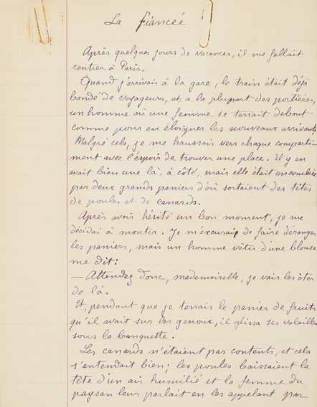 La fiancée
Après quelques jours de vacances, il me fallait
rentrer à Paris.
Quand j'arrivai à la gare, le train était déjà
bondé de voyageurs, et à la plupart des portières,
un homme ou une femme, se tenait debout
comme pour en éloigner les nouveaux arrivants.
Malgré cela, je me haussais vers chaque comparti-
ment avec l'espoir de trouver une place. il y en
avait bien une là, à côté, mais elle était encombrée
par deux grands paniers d'où sortaient des têtes
de poules et de canards.
Après avoir hésité un bon moment, je me
décidai à monter. Je m'excusai de faire déranger
les paniers, mais un homme vêtu d'une blouse
me dit:
— Attendez donc, mademoiselle, je vais les ôter
de là.
Et, pendant que je tenais le panier de fruits
qu'il avait sur ses genoux, il glissa ses volailles
sous la banquette.
Les canards n'étaient pas contents, et cela
s'entendait bien; les poules baissaient la
tête d'un air humilié et la femme du
paysan leur parlait en les appelant par